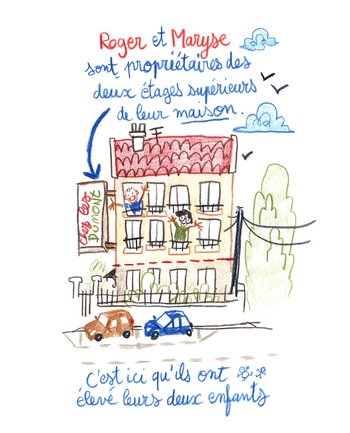 Roger et Maryse
sont propriétaires des
deux étages supérieurs
de leur maison.
Chez les
DUMONT
C'est ici qu'ils ont
élevé leurs deux enfants